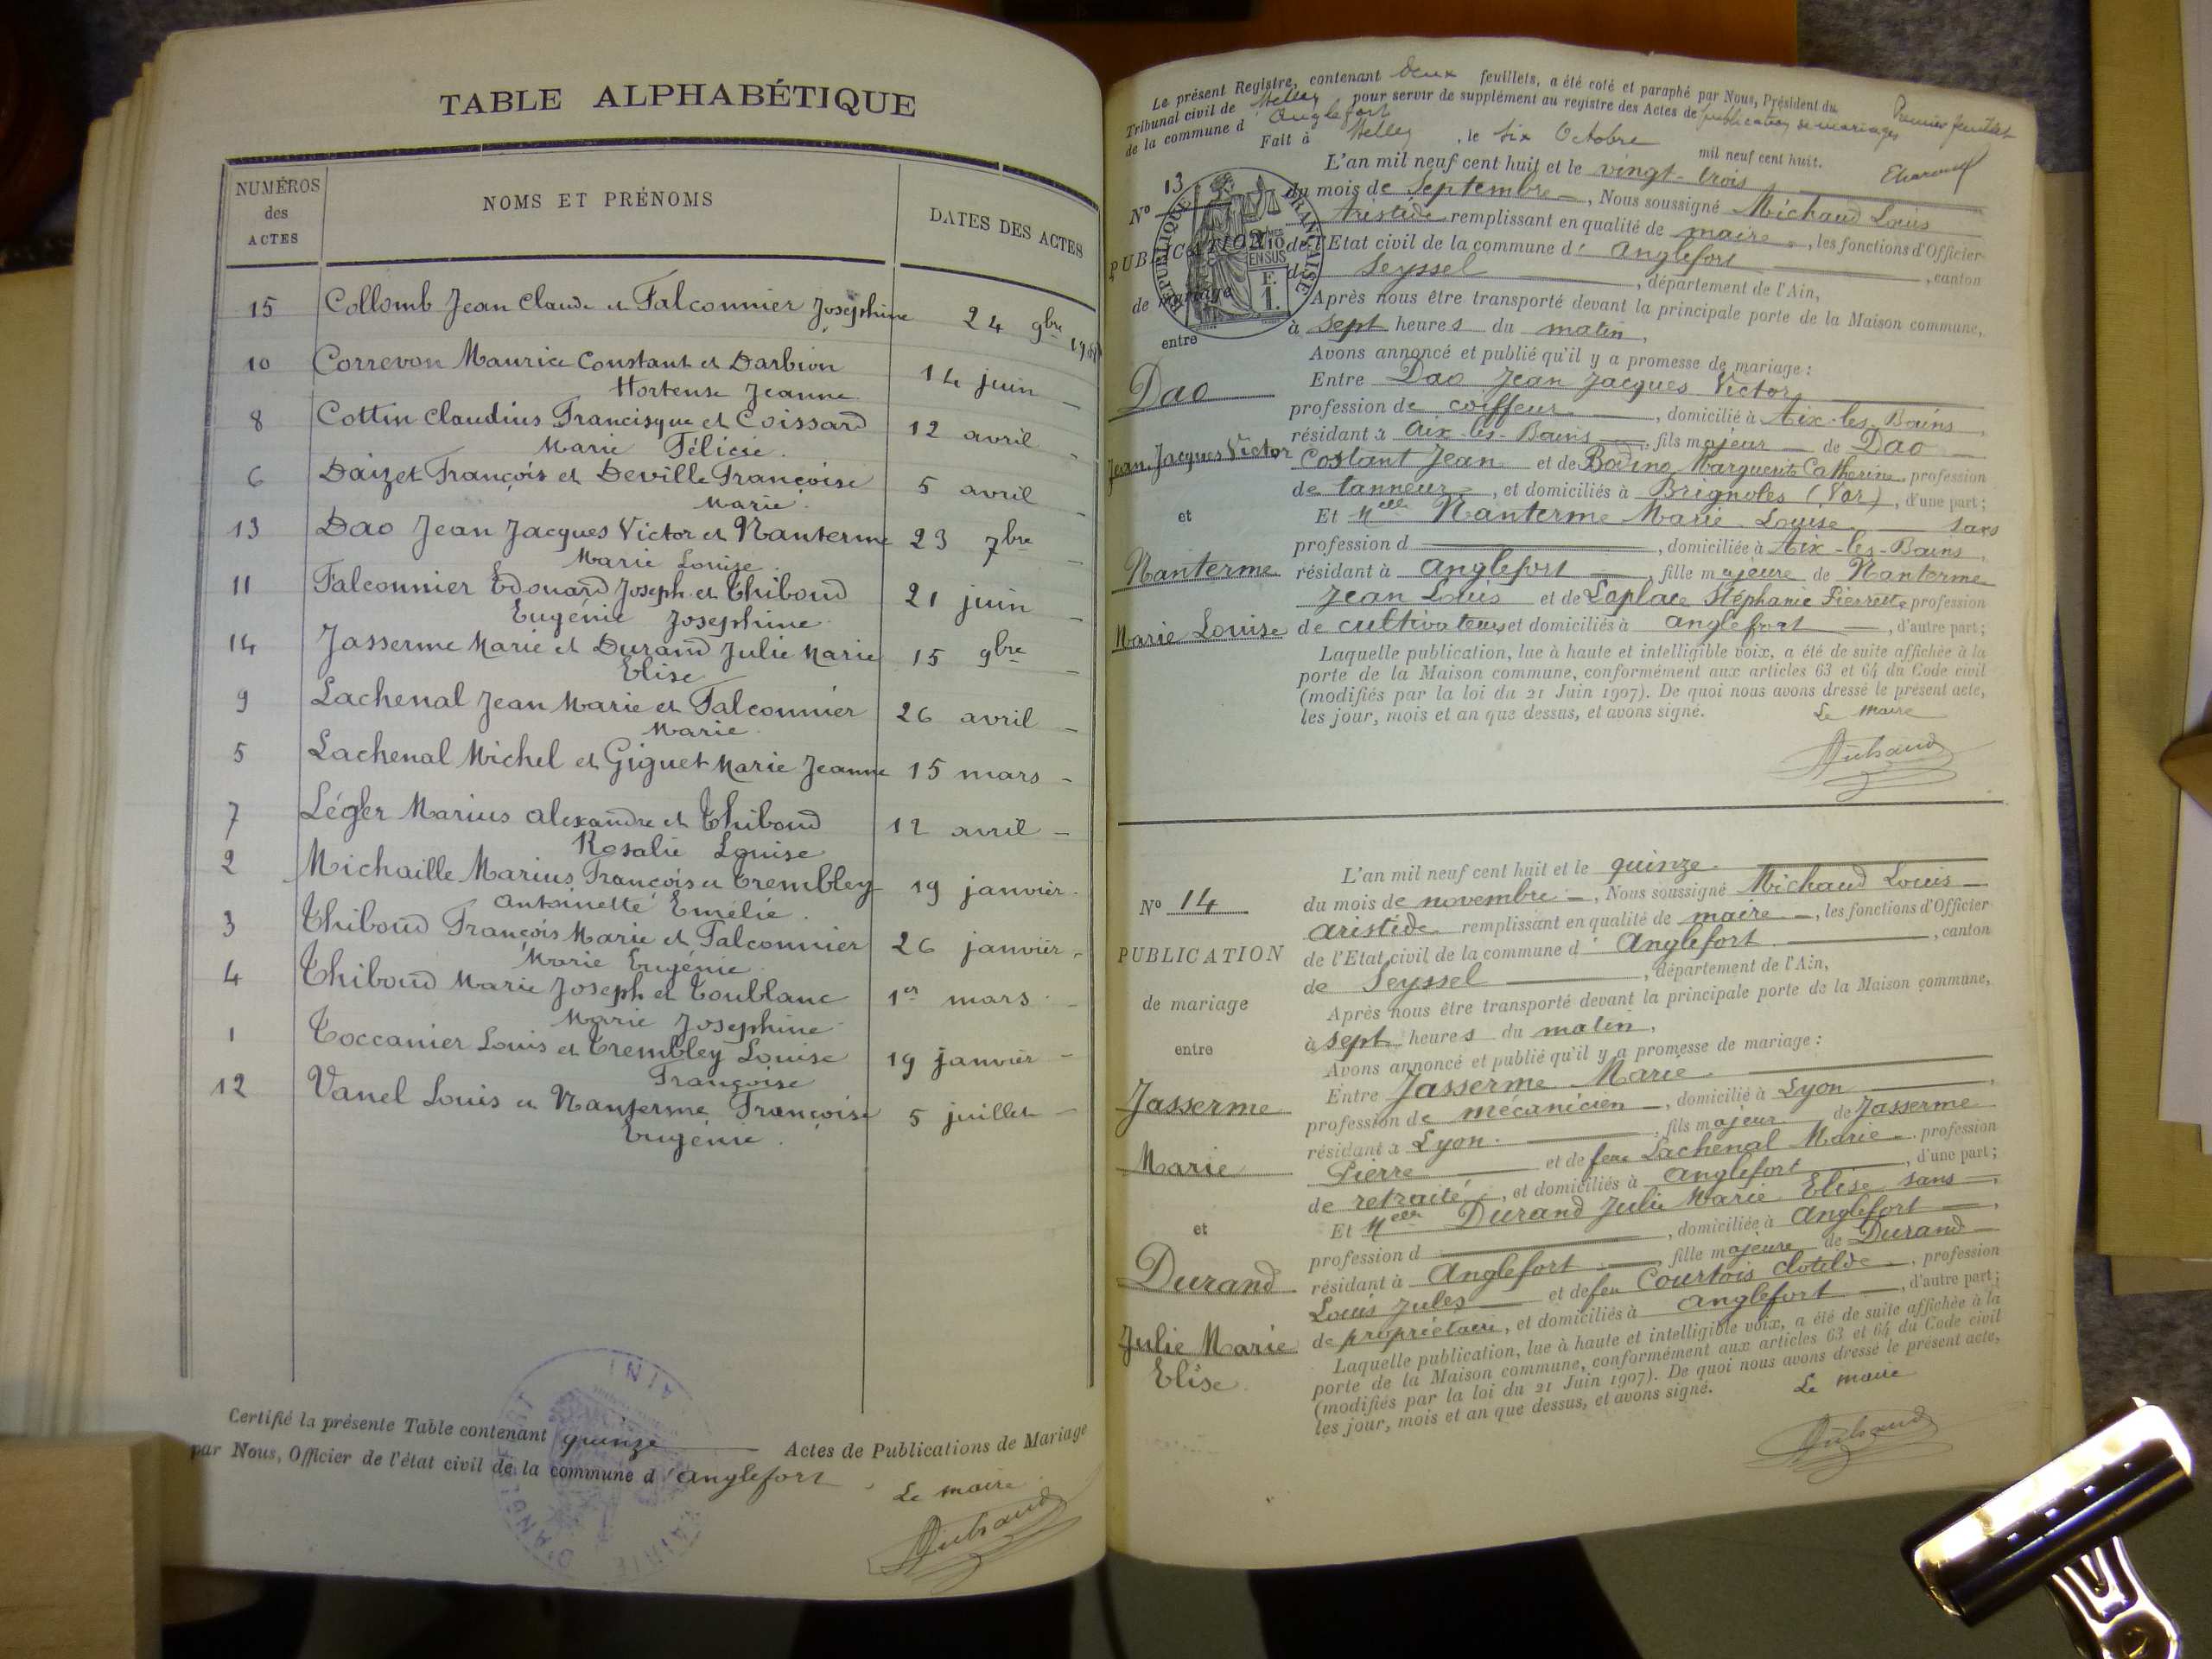 TABLE ALPHABÉTIQUE
NUMÉROS des ACTES
NOMS ET PRÉNOMS
DATES DES ACTES
15 Collomb Jean Claude et Falconnier Joséphine 24 9bre 1908
10 Correvon Maurice Constant et Darbion 14 juin _
Hortense Jeanne
8 Cottin Claudius Francisque et Coissard 12 avril _
Marie Félicie.
6 Daizet François et Deville Françoise 5 avril _
Marie.
13 Dao Jean Jacques Victor et Nanterme 23 7bre _
Marie Louise.
11 Falconnier Edouard Joseph et Thiboud 21 juin _
Eugénie Josephine.
14 Jasserme Marie et Durand Julie Marie 15 9bre _
Elise
9 Lachenal Jean Marie et Falconnier 26 avril _
Marie.
5 Lachenal Michel et Giguet Marie Jeanne 15 mars -
7 Léger Marius Alexandre et Thiboud 12 avril -
Rosalie Louise
2 Michaille Marius François et Trembley 19 janvier -
Antoinette Emélie.
3 Thiboud François Marie et Falconnier 26 janvier -
Marie Eugénie.
4 Thiboud Marie Joseph et Toublanc 1er mars. -
Marie Josephine
1 Toccanier Louis et Trembley Louise 19 janvier -
Françoise
12 Vanel Louis et Nanterme Françoise 5 juillet -
Eugénie.
Certifié la présente Table contenant quinze Actes de Publications de Mariage
par Nous, Officier de l'état civil de la commune d'Anglefort.
Le maire
MAIRIE D'ANGLEFORT (AIN)
Le présent Registre, contenant deux feuillets, a été coté et paraphé par Nous, Président du
Tribunal civil de Belley pour servir de supplément au registre des Actes de publication de mariages
de la commune d'Anglefort
Premier feuillet
Fait à Belley, le six Octobre mil neuf cent huit.
RÉPUBLIQUE FRANÇAISE
2/10 EN SUS
F. 1.
N° 13
PUBLICATION
de mariage
entre
Dao
Jean Jacques Victor
et
Nanterme
Marie Louise
L'an mil neuf cent huit et le vingt-trois
du mois de Septembre, Nous soussigné Michaud Louis
Aristide remplissant en qualité de maire, les fonctions d'Officier
de l'Etat civil de la commune d'Anglefort, canton
de Seyssel, département de l'Ain,
Après nous être transporté devant la principale porte de la Maison commune,
à sept heures du matin,
Avons annoncé et publié qu'il y a promesse de mariage :
Entre Dao Jean Jacques Victor
profession de coiffeur, domicilié à Aix-les-Bains,
résidant à Aix-les-Bains, fils majeur de Dao
Costant Jean et de Bodino Marguerite Catherine, profession
de tanneur, et domiciliés à Brignoles (Var), d'une part ;
Et Melle Nanterme Marie Louise sans
profession d, domiciliée à Aix-les-Bains,
résidant à Anglefort, fille majeure de Nanterme
Jean Louis et de Laplace Stéphanie Pierrette profession
de cultivateurs et domiciliés à Anglefort, d'autre part ;
Laquelle publication, lue à haute et intelligible voix, a été de suite affichée à la
porte de la Maison commune, conformément aux articles 63 et 64 du Code civil
(modifiés par la loi du 21 Juin 1907). De quoi nous avons dressé le présent acte,
les jour, mois et an que dessus, et avons signé.
Le maire
N° 14
PUBLICATION
de mariage
entre
Jasserme
Marie
et
Durand
Julie Marie
Elise
L'an mil neuf cent huit et le quinze
du mois de novembre, Nous soussigné Michaud Louis
Aristide remplissant en qualité de maire, les fonctions d'Officier
de l'Etat civil de la commune d'Anglefort, canton
de Seyssel, département de l'Ain,
Après nous être transporté devant la principale porte de la Maison commune,
à sept heures du matin,
Avons annoncé et publié qu'il y a promesse de mariage :
Entre Jasserme Marie
profession de mécanicien, domicilié à Lyon,
résidant à Lyon, fils majeur de Jasserme
Pierre et de feue Lachenal Marie, profession
de retraité, et domiciliés à Anglefort, d'une part ;
Et Melle Durand Julie Marie Elise sans
profession d, domiciliée à Anglefort,
résidant à Anglefort, fille majeure de Durand
Louis Jules et de feu Courtois Clotilde, profession
de propriétaire, et domiciliés à Anglefort, d'autre part ;
Laquelle publication, lue à haute et intelligible voix, a été de suite affichée à la
porte de la Maison commune, conformément aux articles 63 et 64 du Code civil
(modifiés par la loi du 21 Juin 1907). De quoi nous avons dressé le présent acte,
les jour, mois et an que dessus, et avons signé.
Le maire